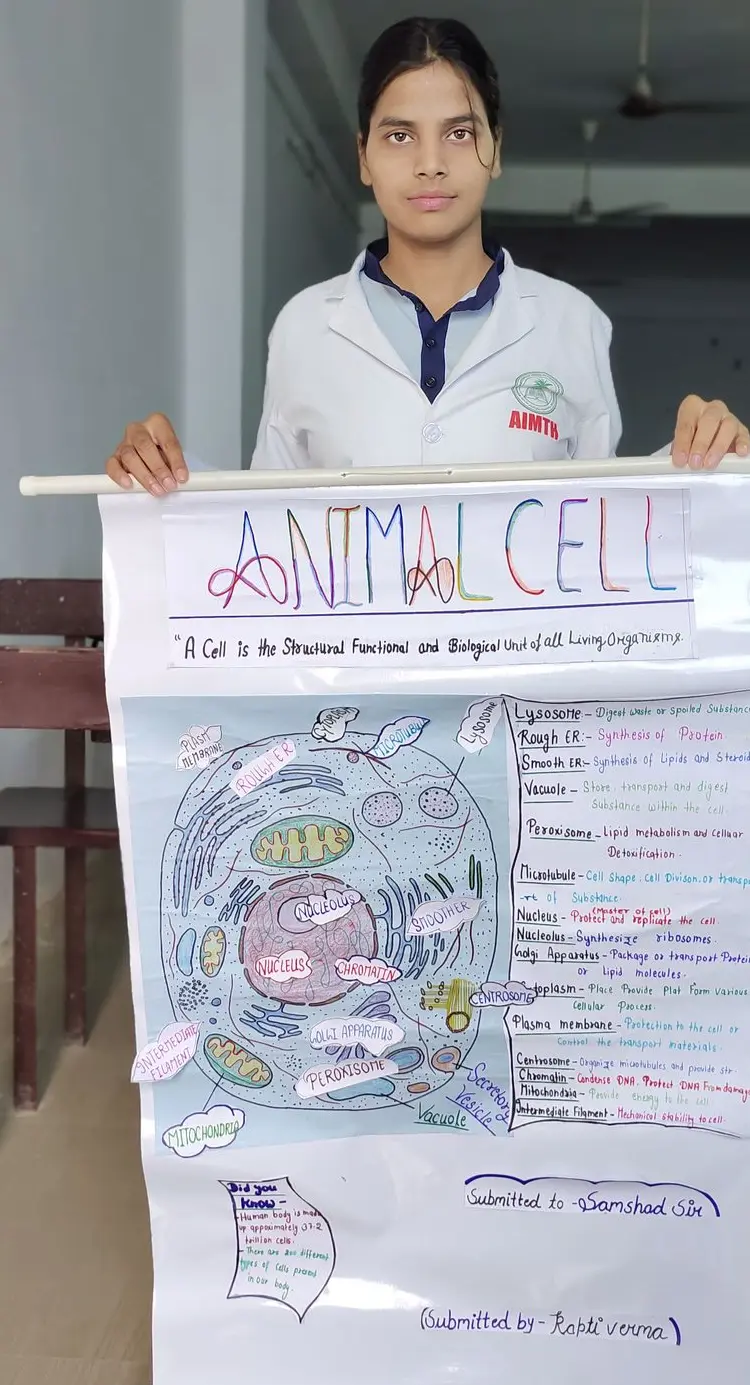 AIMTH
ANIMAL CELL
"A Cell is the Structural Functional and Biological Unit of all Living Organisms.
PLASM
MEMBRANE
ROUGH ER
MICROTUBU
Lysosome
NUCLEOLUS
SMOOTHER
NUCLEUS
CHROMATIN
CENTROSOME
INTERMEDIATE
FILAMENT
GOLGI APPARATUS
PEROXISOME
Secretory
Vesicle
Vacuole
MITOCHONDRIA
Lysosome:- Digest waste or Spoiled Substanc
Rough ER:- Synthesis of Protein
Smooth ER:- Synthesis of Lipids and Steroid
Vacuole - Store, transport and digest
Substance within the cell.
Peroxisome - Lipid metabolism and celluar
Detoxification.
Microtubule - Cell Shape, Cell Divison, or transp
-rt of Substance
Nucleus - Protect and replicate the cell.
(Master of cell)
Nucleolus - Synthesize ribosomes.
Golgi Apparatus - Package or transport Protein
or Lipid molecules.
toplasm - Place Provide Plat Form various
Cellular Process.
Plasma membrane - Protection to the cell or
Control the transport materials.
Centrosome - Organize microtubules and provide str.
Chromatin - Condense DNA. Protect DNA From damag
Mitochondria - Provide energy to the cell
Intermediate Filament - Mechanical stability to cell.
Did you
Know -
- Human body is mad
up appoximately 37.2
trillion cells.
- There are 200 different
types of Cells present
in our body.
Submitted to - Samshad Sir
(Submitted by - Rapti verma)